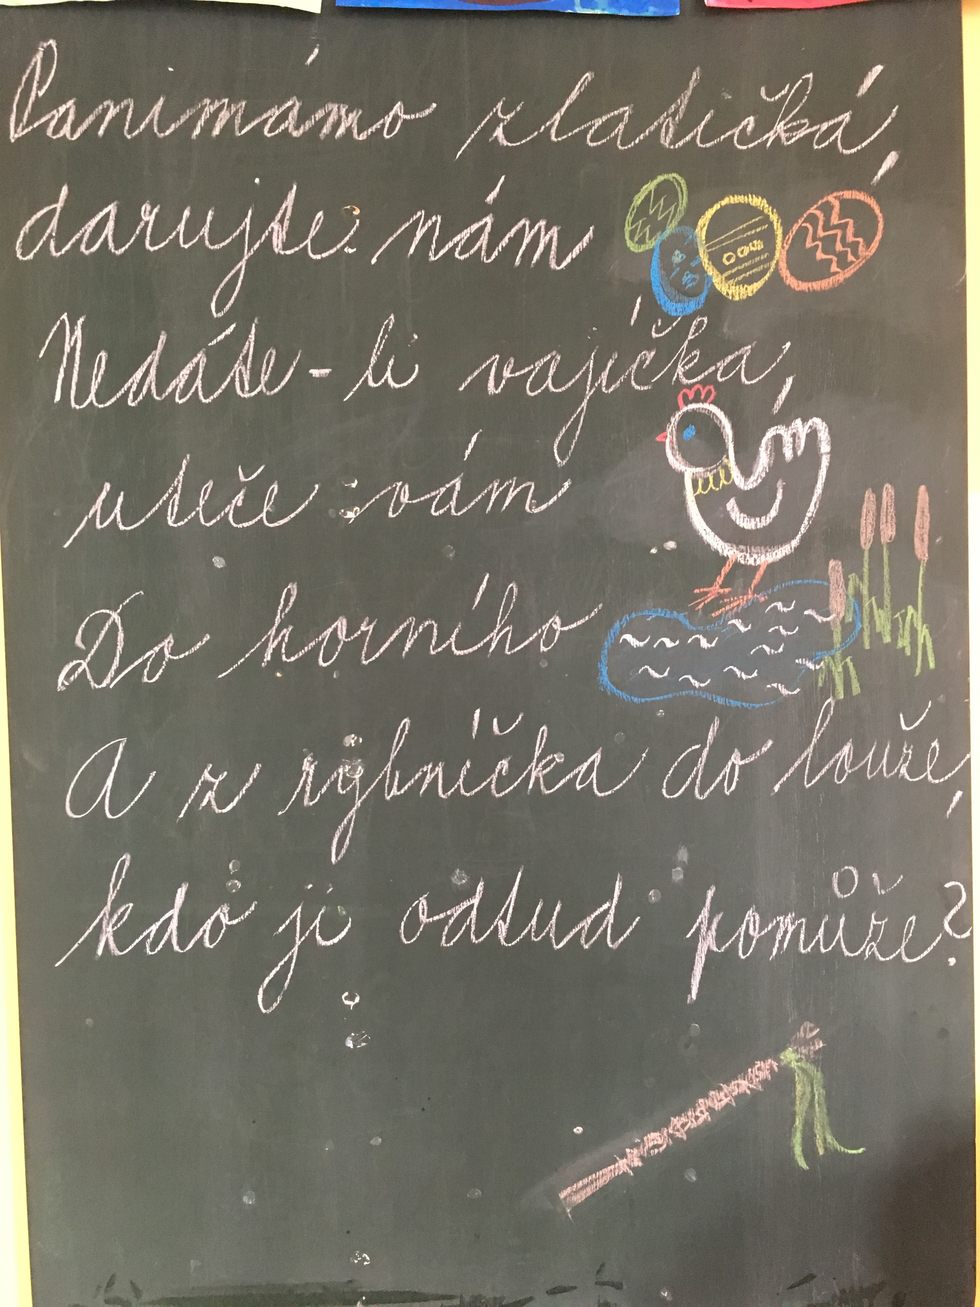 Panimámo zlatičká,
darujte nám
Nedáte-li vajíčka,
uteče vám
Do horního
A z rybníčka do louže,
kdo ji odtud pomůže?